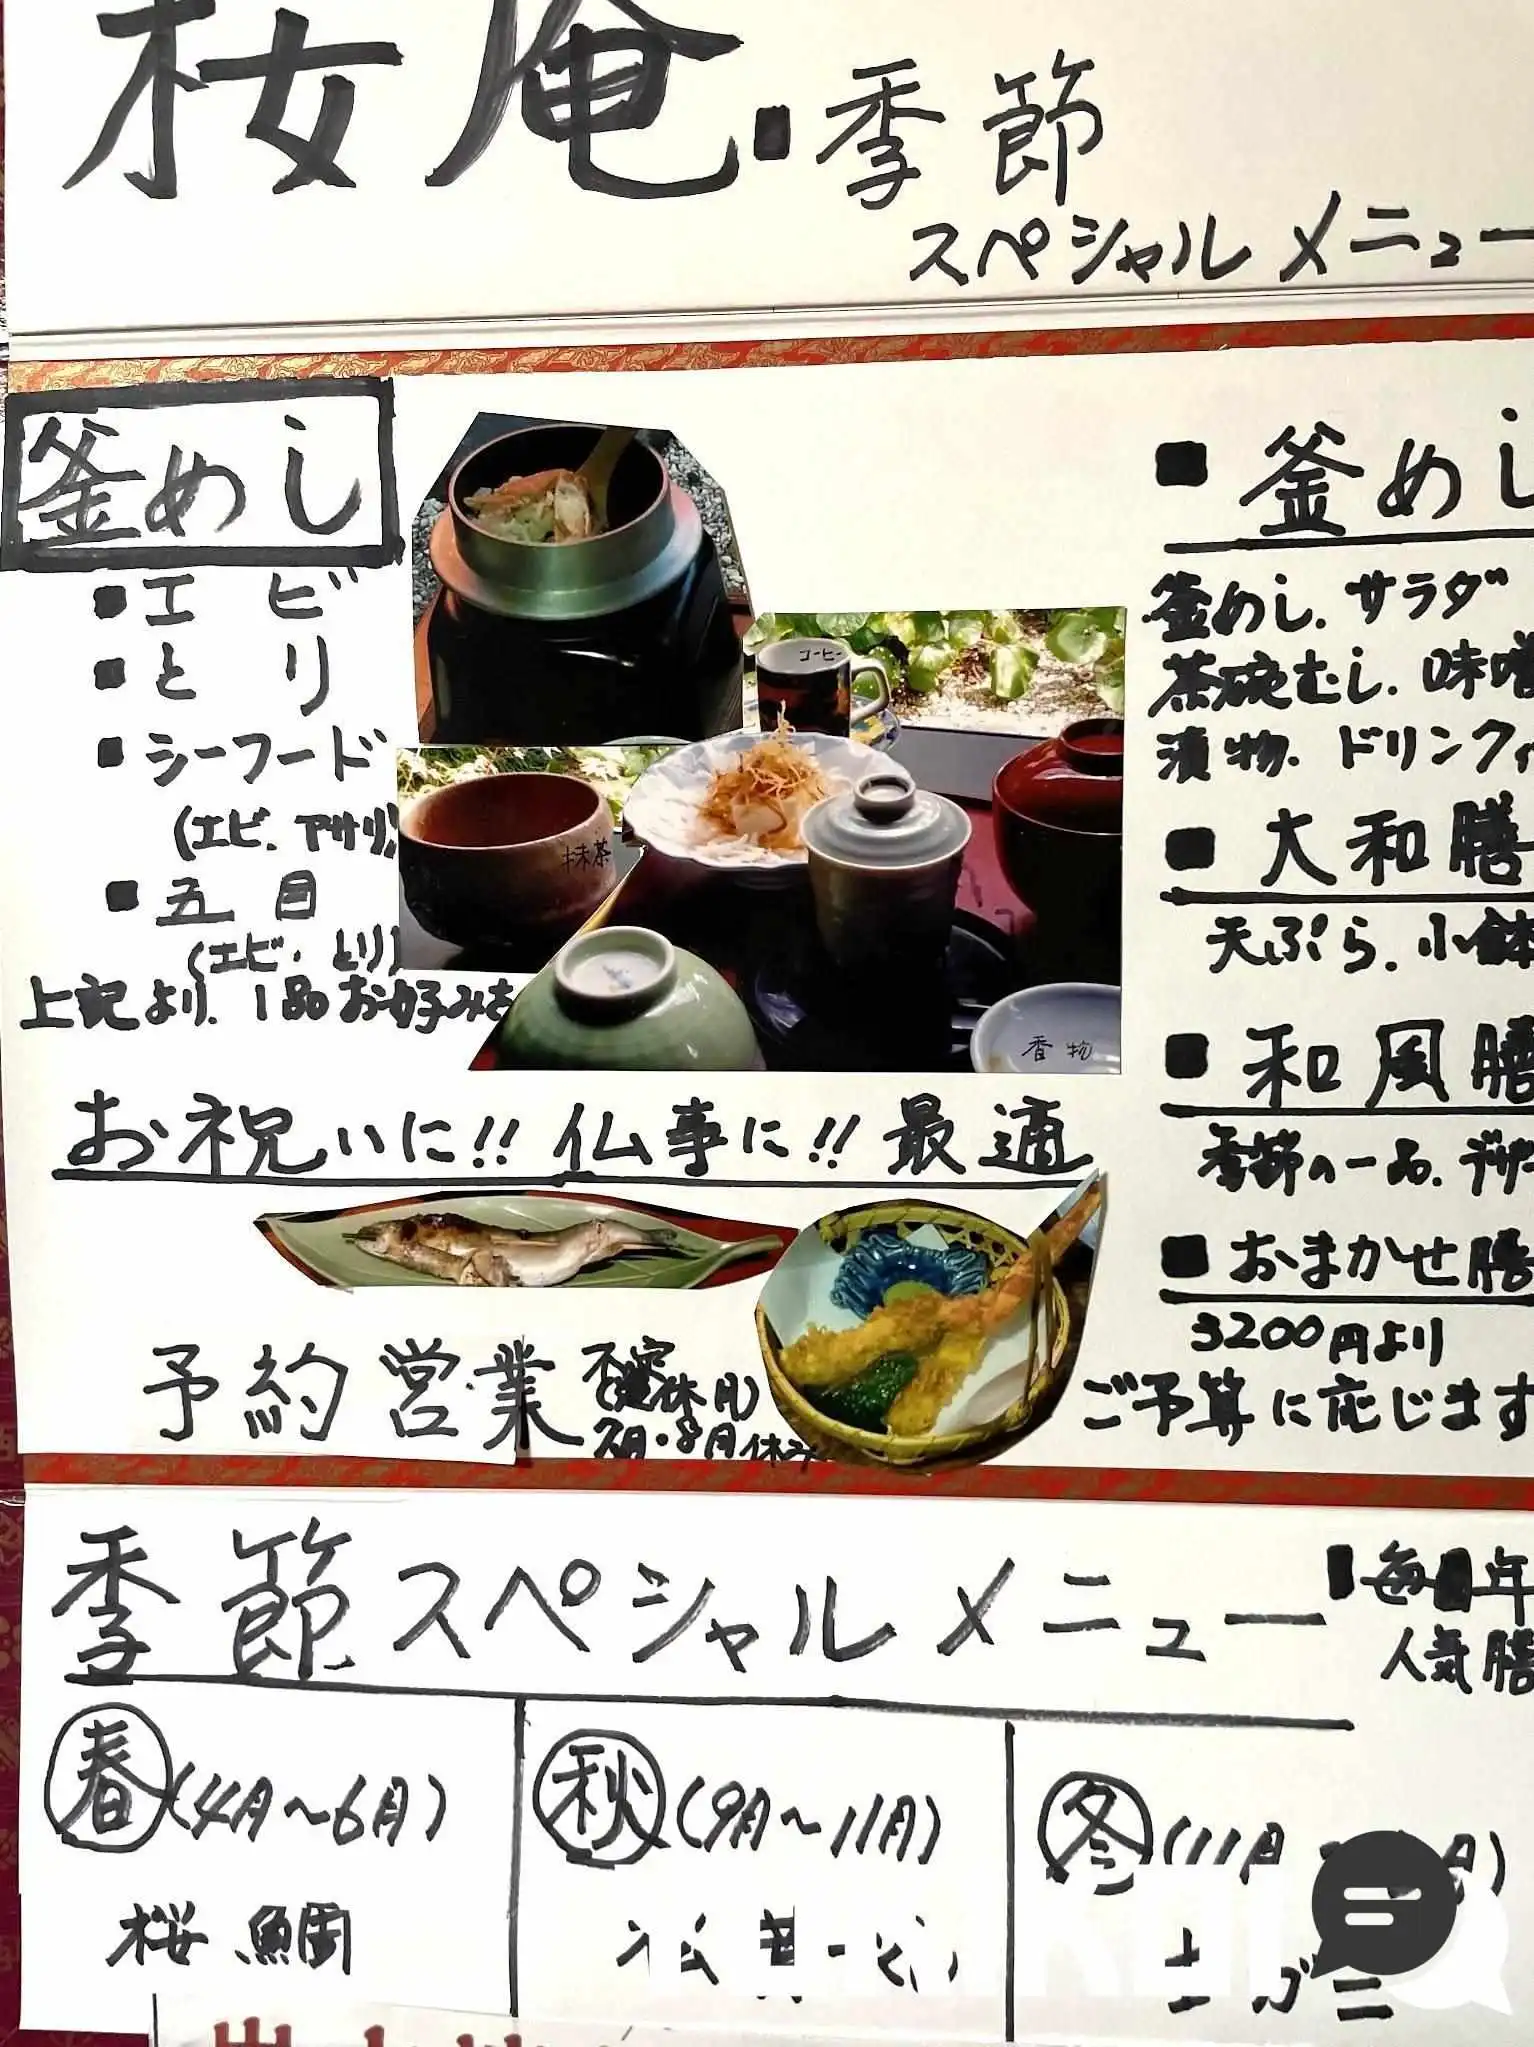 桜庵・季節
スペシャルメニュー
釜めし
■エビ
■とり
■シーフード
(エビ、アサリ)
■五目
(エビ・とり)
上記より、1品お好みを
コーヒー
抹茶
香物
お祝いに!!仏事に!!最適
予約営業
7月・8月休み
■釜めし
釜めし、サラダ
茶碗むし、味噌
漬物、ドリンク
■大和膳
天ぷら、小鉢
■和風膳
季節の一品、デザー
■おまかせ膳
3200円より
ご予算に応じます
季節スペシャルメニュー
■毎年
人気膳
春(4月〜6月)
桜鯛
秋(9月〜11月)
冬(11月